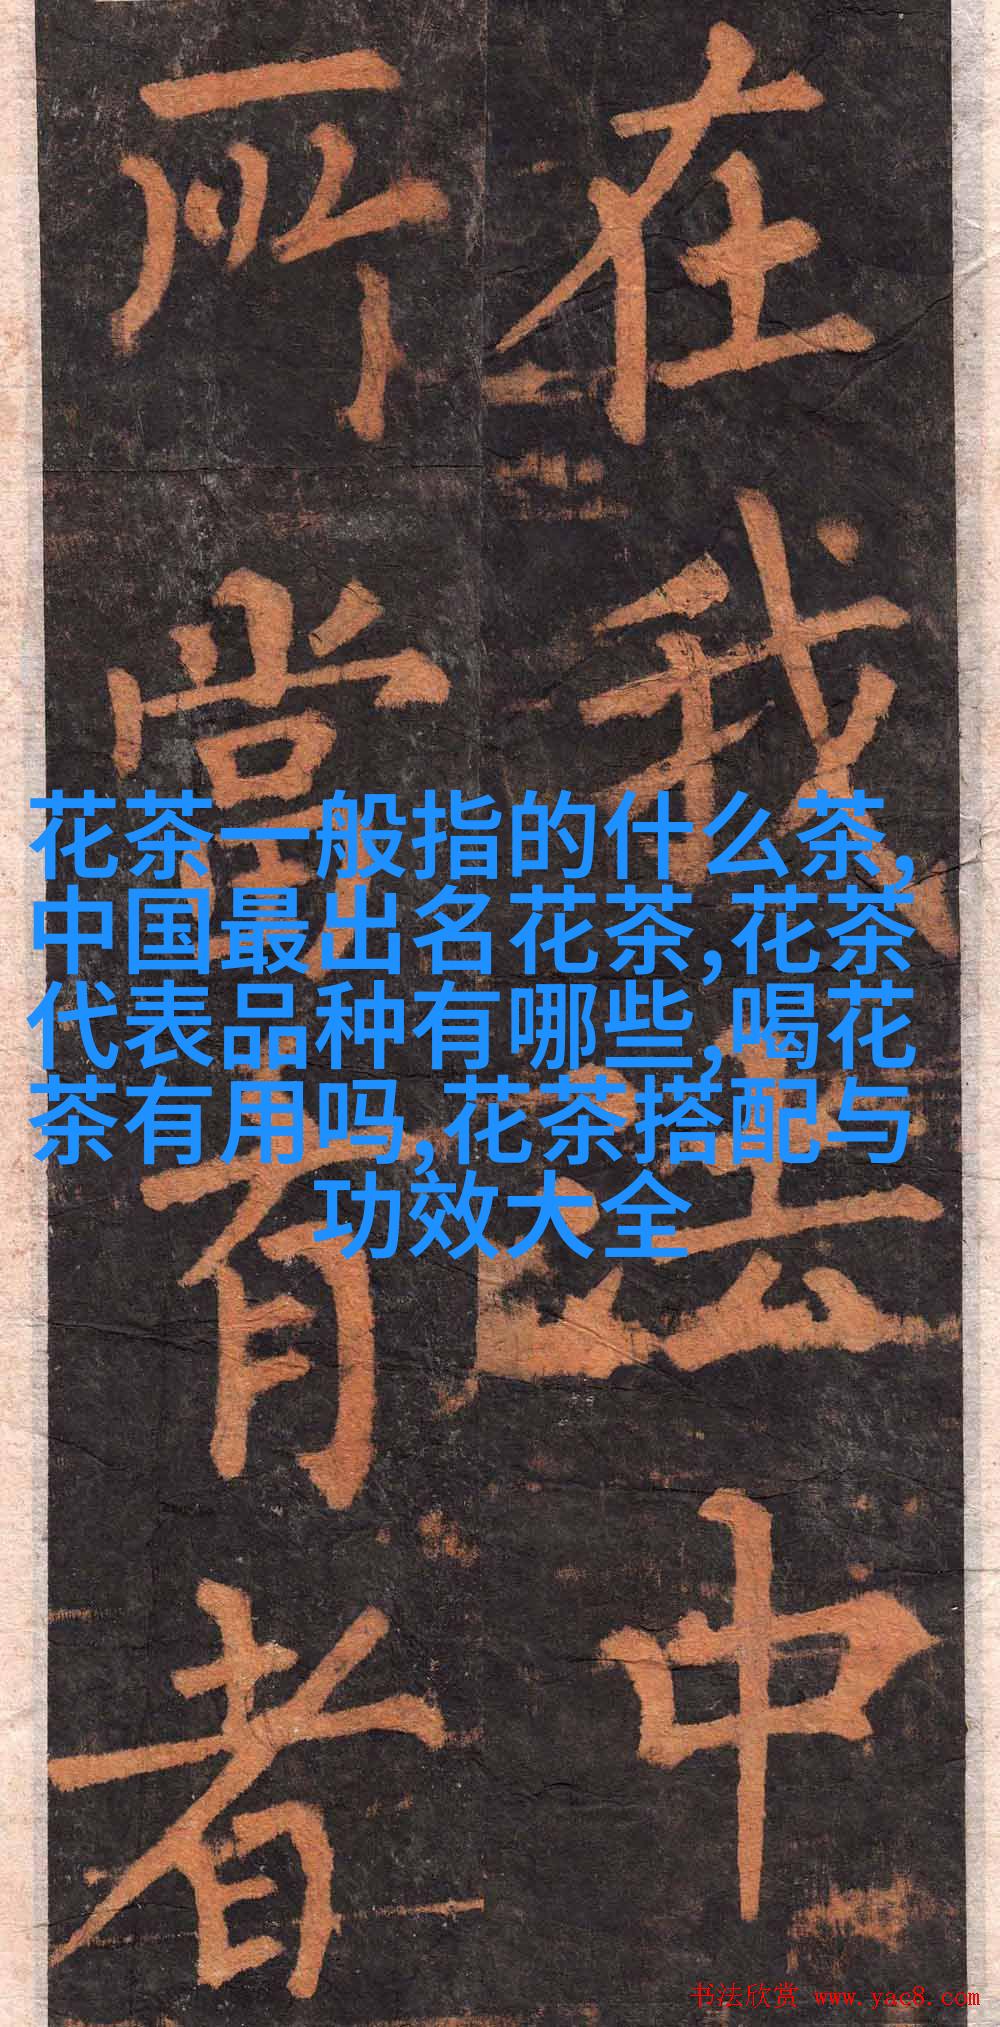 在我法中
所當有者
花茶一般指的什么茶,
中国最出名花茶,花茶
代表品种有哪些,喝花
茶有用吗,花茶搭配与
功效大全
书法欣赏 www.yac8.com